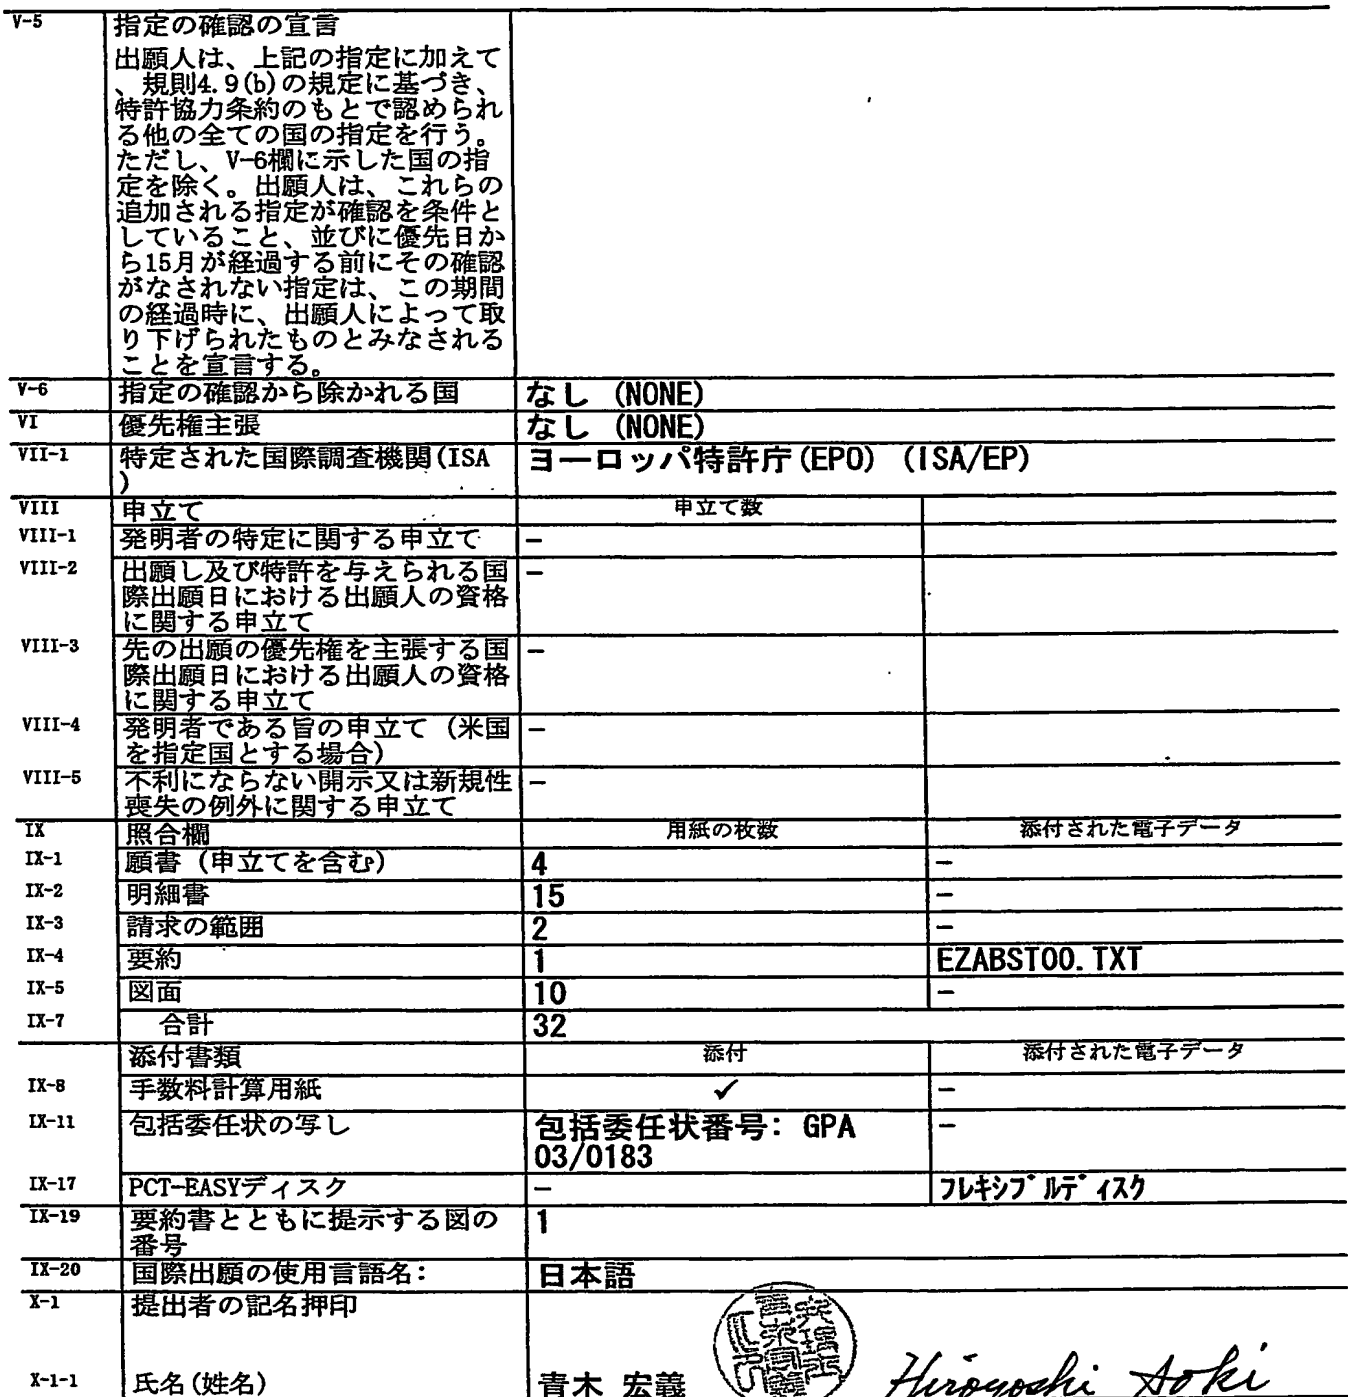 V-5 指定の確認の宣言
出願人は、上記の指定に加えて
、規則4.9(b)の規定に基づき、
特許協力条約のもとで認められ
る他の全ての国の指定を行う。
ただし、V-6欄に示した国の指
定を除く。出願人は、これらの
追加される指定が確認を条件と
していること、並びに優先日か
ら15月が経過する前にその確認
がなされない指定は、この期間
の経過時に、出願人によって取
り下げられたものとみなされる
ことを宣言する。
V-6 指定の確認から除かれる国 なし (NONE)
VI 優先権主張 なし (NONE)
VII-1 特定された国際調査機関(ISA ヨーロッパ特許庁(EPO) (ISA/EP)
)
VIII 申立て 申立て数
VIII-1 発明者の特定に関する申立て –
VIII-2 出願し及び特許を与えられる国 –
際出願日における出願人の資格
に関する申立て
VIII-3 先の出願の優先権を主張する国 –
際出願日における出願人の資格
に関する申立て
VIII-4 発明者である旨の申立て (米国 –
を指定国とする場合)
VIII-5 不利にならない開示又は新規性 –
喪失の例外に関する申立て
IX 照合欄 用紙の枚数 添付された電子データ
IX-1 願書 (申立てを含む) 4 –
IX-2 明細書 15 –
IX-3 請求の範囲 2 –
IX-4 要約 1 EZABST00.TXT
IX-5 図面 10 –
IX-7 合計 32
添付書類 添付 添付された電子データ
IX-8 手数料計算用紙 ✓ –
IX-11 包括委任状の写し 包括委任状番号: GPA –
03/0183
IX-17 PCT-EASYディスク – フレキシブルディスク
IX-19 要約書とともに提示する図の 1
番号
IX-20 国際出願の使用言語名: 日本語
X-1 提出者の記名押印
X-1-1 氏名(姓名) 青木 宏義 Hiroyoshi Aoki